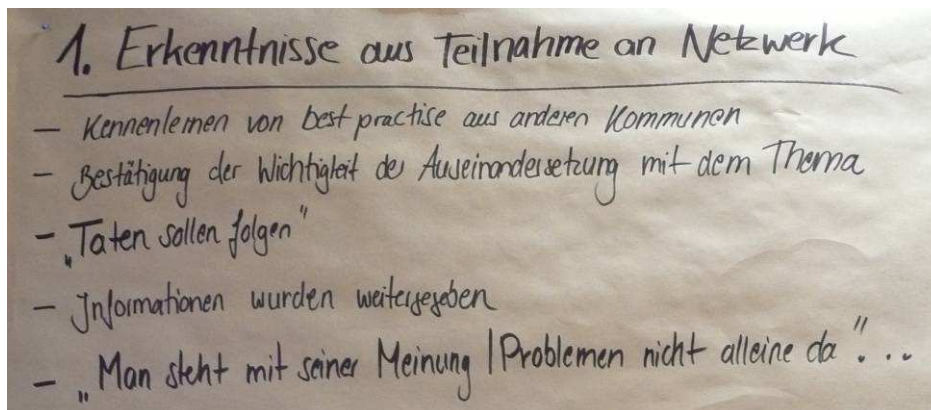 1. Erkenntnisse aus Teilnahme an Netzwerk
- Kennenlernen von best practise aus anderen Kommunen
- Bestätigung der Wichtigkeit der Auseinandersetzung mit dem Thema
- „Taten sollen folgen"
- Informationen wurden weitergegeben
- „Man steht mit seiner Meinung / Problemen nicht alleine da"...